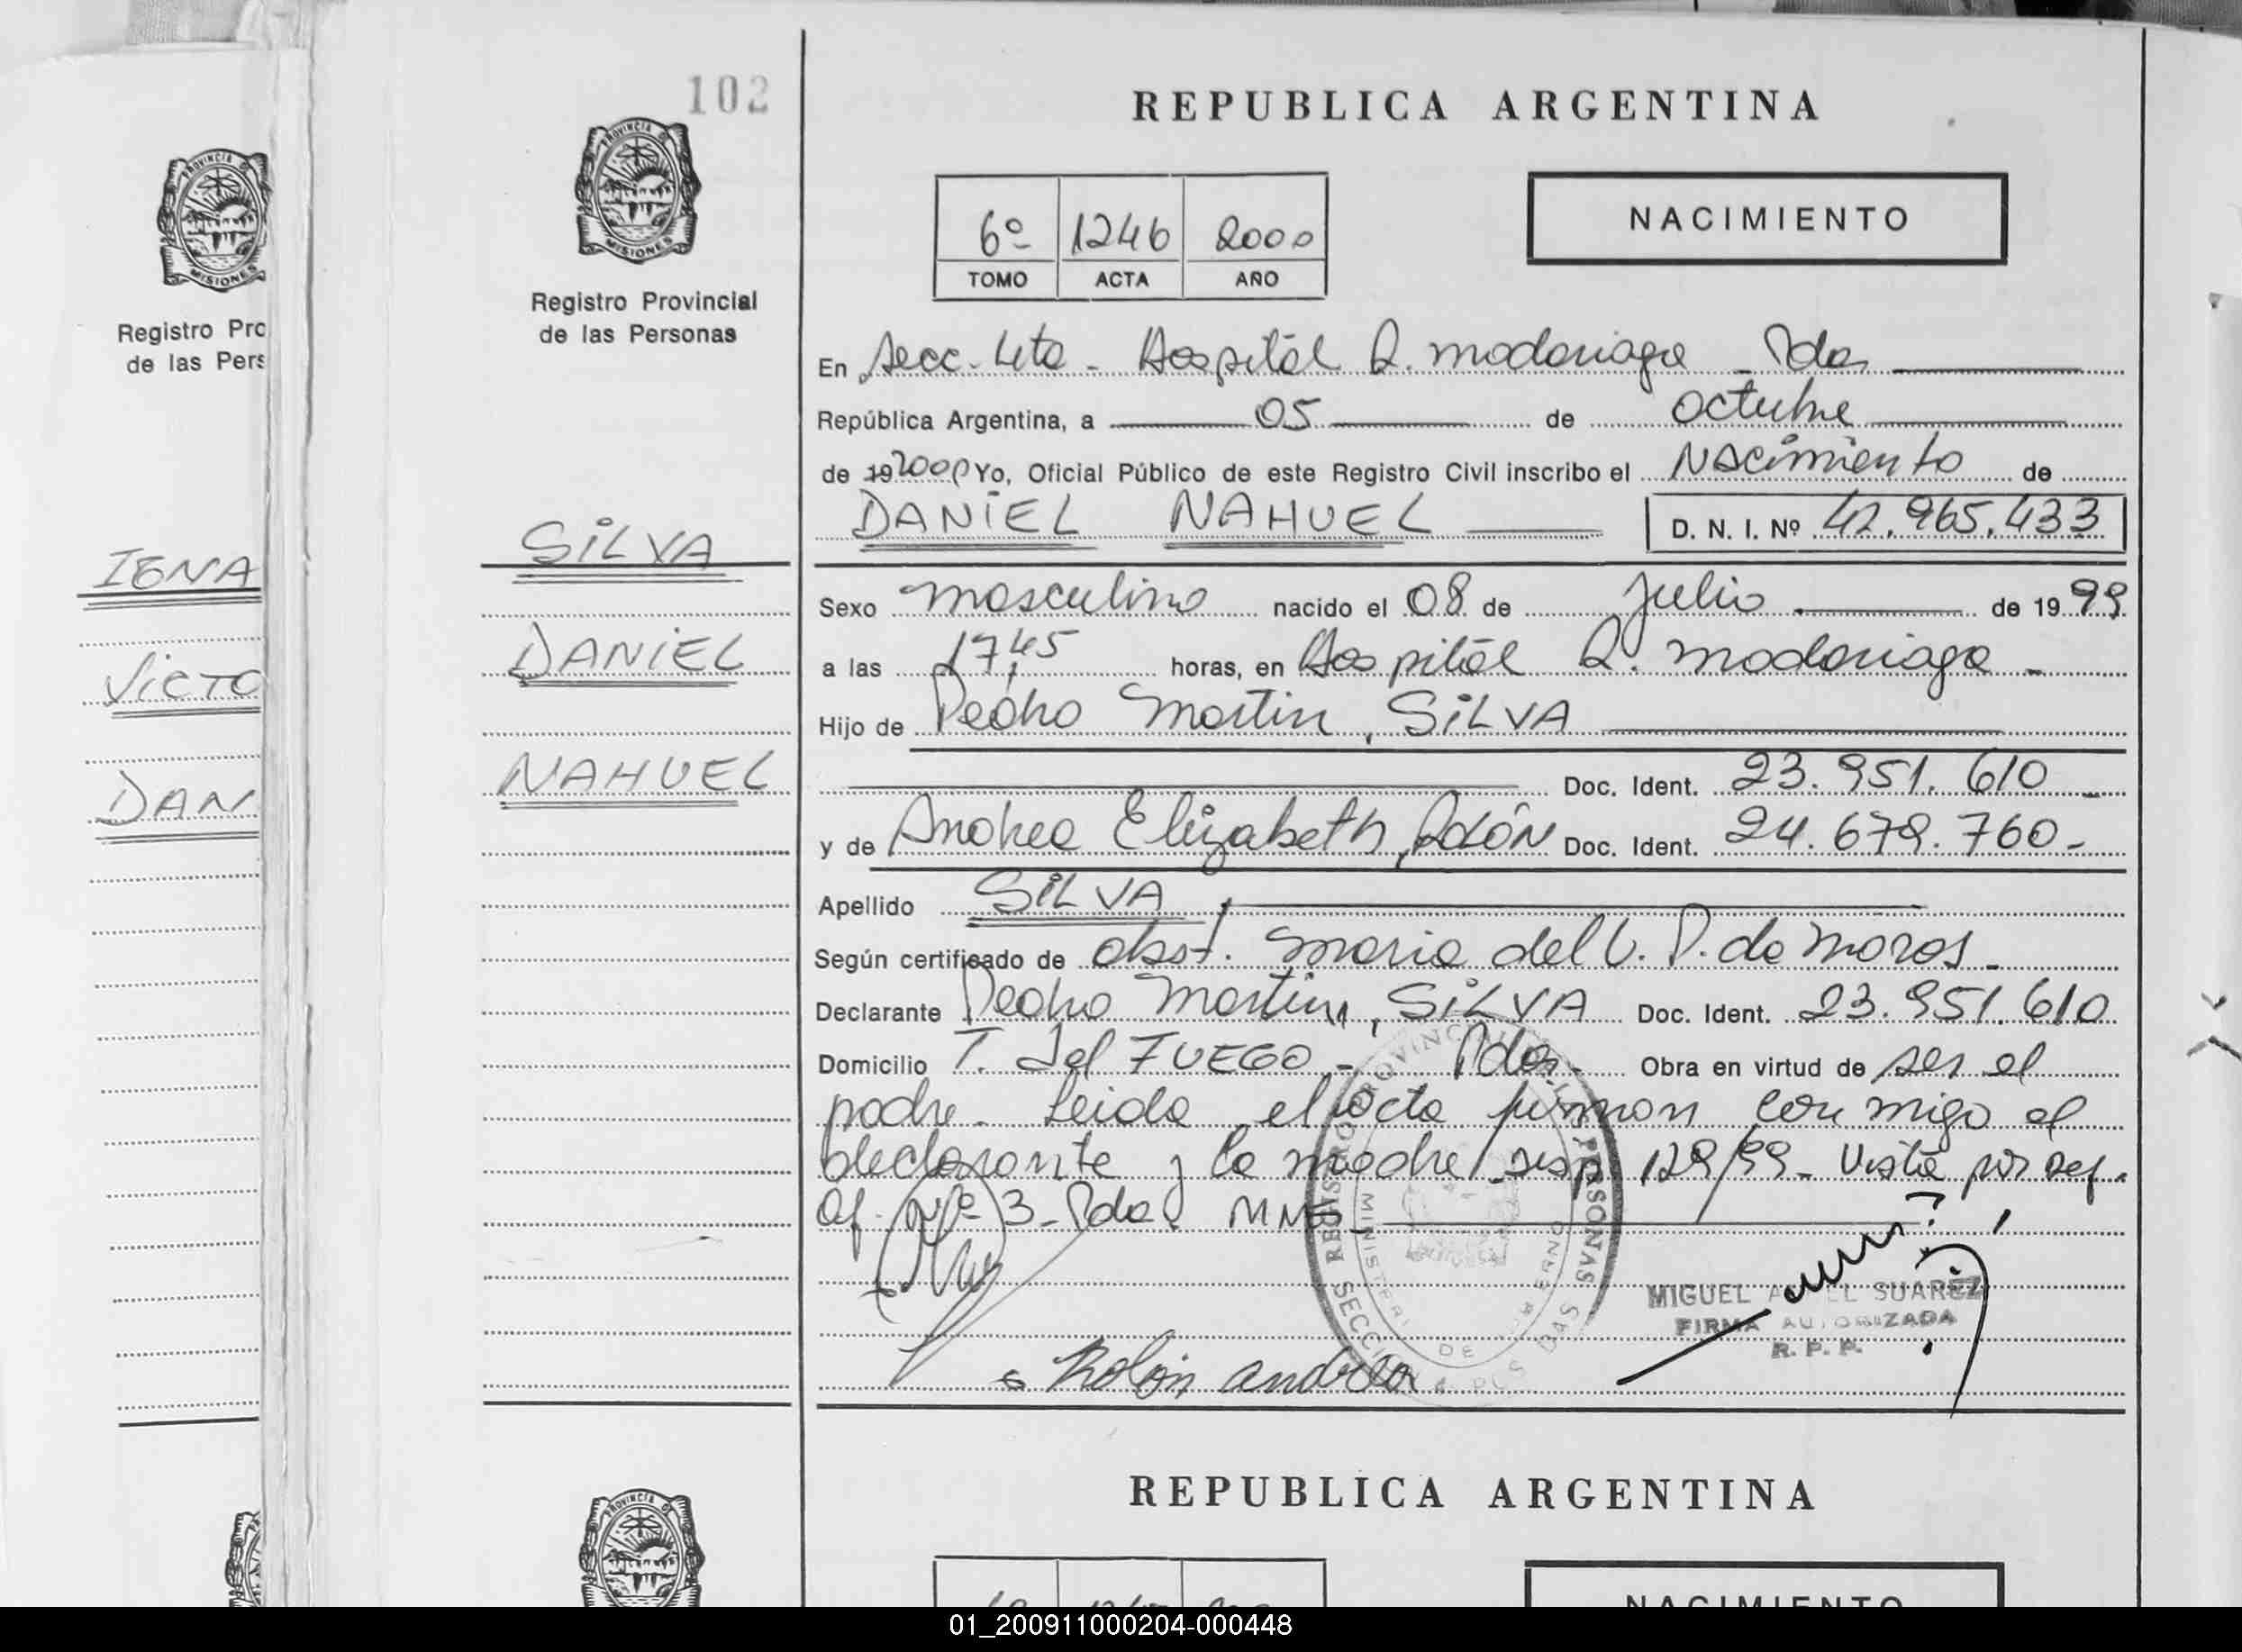 102
PROVINCIA D
MISIONES
Registro Pro
de las Pers
IGNA
VICTO
DAN
PROVINCIA D
MISIONES
Registro Provincial
de las Personas
SILVA
DANIEL
NAHUEL
REPUBLICA ARGENTINA
6º 1246 2000
TOMO ACTA AÑO
NACIMIENTO
En Secc. 4ta - Hospital R. Madariaga - Pdas
República Argentina, a 05 de octubre
de 19 2000 Yo, Oficial Público de este Registro Civil inscribo el Nacimiento de
DANIEL NAHUEL D. N. I. Nº 42.965.433
Sexo masculino nacido el 08 de Julio de 1999
a las 17,45 horas, en Hospital R. Madariaga -
Hijo de Pedro Martin, SILVA
Doc. Ident. 23.951.610 -
y de Andrea Elizabeth, ROLÓN Doc. Ident. 24.679.760 -
Apellido SILVA
Según certificado de obst. Maria del C. P. de Moros -
Declarante Pedro Martin, SILVA Doc. Ident. 23.951.610
Domicilio T. del FUEGO - Pdas. Obra en virtud de ser el
padre. Leida el acta firman conmigo el
declarante y la madre disp. 129/99 - Vista por Def.
Of. Nº 3 - Pdas
REGISTRO PROVINCIAL PERSONAS
SECCION
MINISTERI DE
MIGUEL ANGEL SUAREZ
FIRMA AUTORIZADA
R. P. P.
Rolón Andrea
PROVINCIA D
REPUBLICA ARGENTINA
NACIMIENTO
01_200911000204-000448